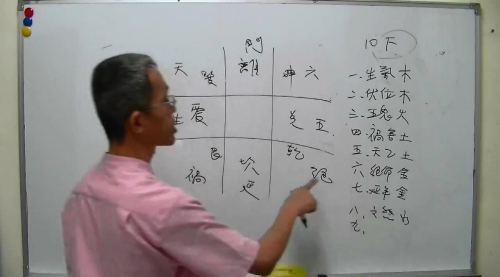 天 巽 離 坤 六
震 兌 五
艮 坎 乾
禍 絕
10下
一、生氣木
二、伏位木
三、五鬼火
四、禍害土
五、天乙土
六、絕命金
七、延年金
八、文
九、